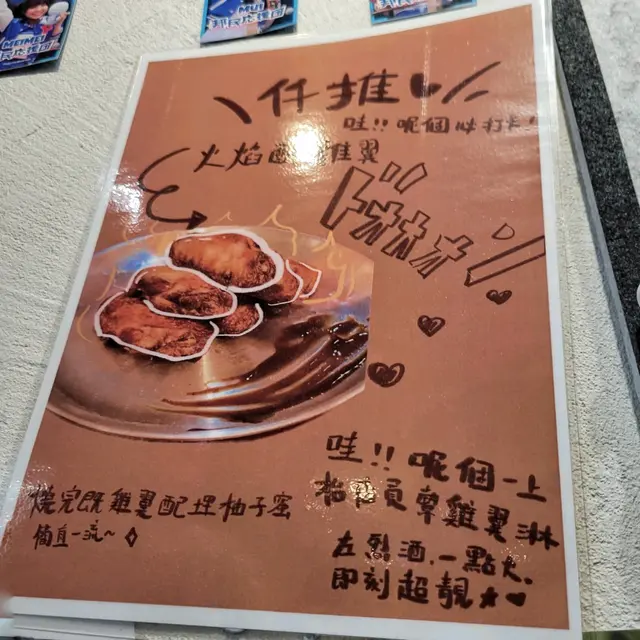 MUI
仟推
哇!! 呢個 打卡
火焰 雞翼
ドオオオン
哇!! 呢個一上
枱 員章雞翼淋
左烈酒,一點火,
即刻超靚
燒完既雞翼配埋柚子蜜
簡直一流~